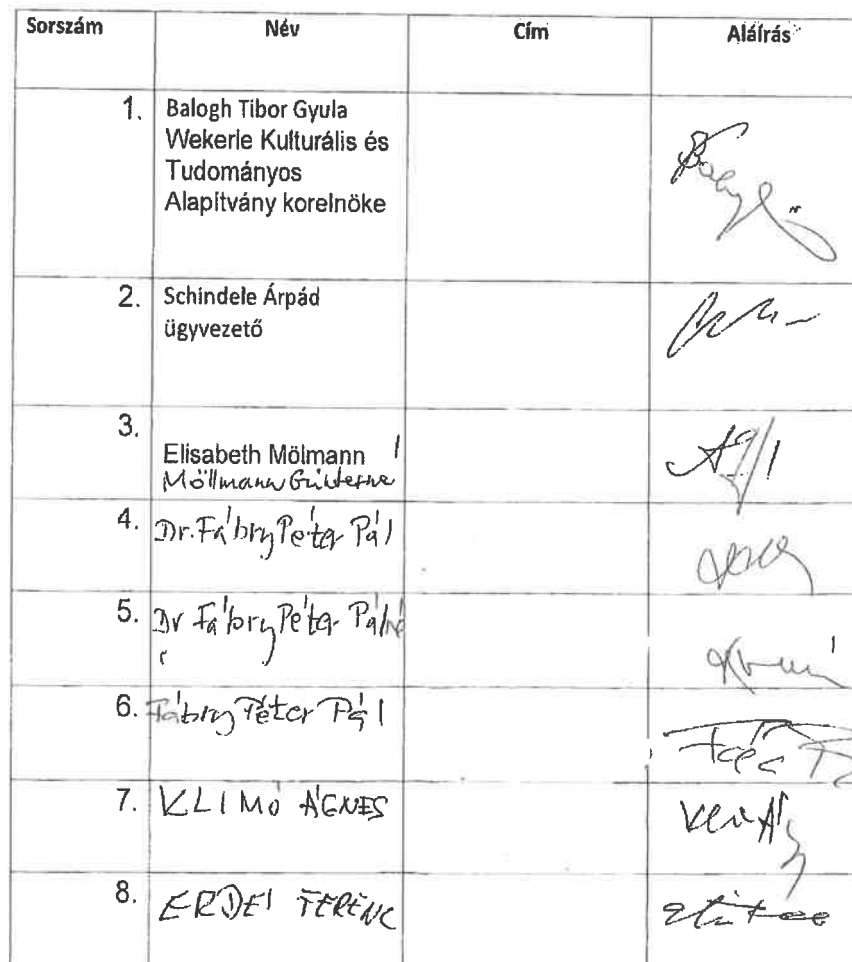 Sorszám Név Cím Aláírás
1. Balogh Tibor Gyula
Wekerle Kulturális és
Tudományos
Alapítvány korelnöke
2. Schindele Árpád
ügyvezető
3.
Elisabeth Mölmann
Möllmann Günterne
4. Dr. Fábry Péter Pál
5. Dr Fábry Péter Pálné
6. Fábry Péter Pál
7. KLIMÓ ÁGNES
8. ERDEI FERENC